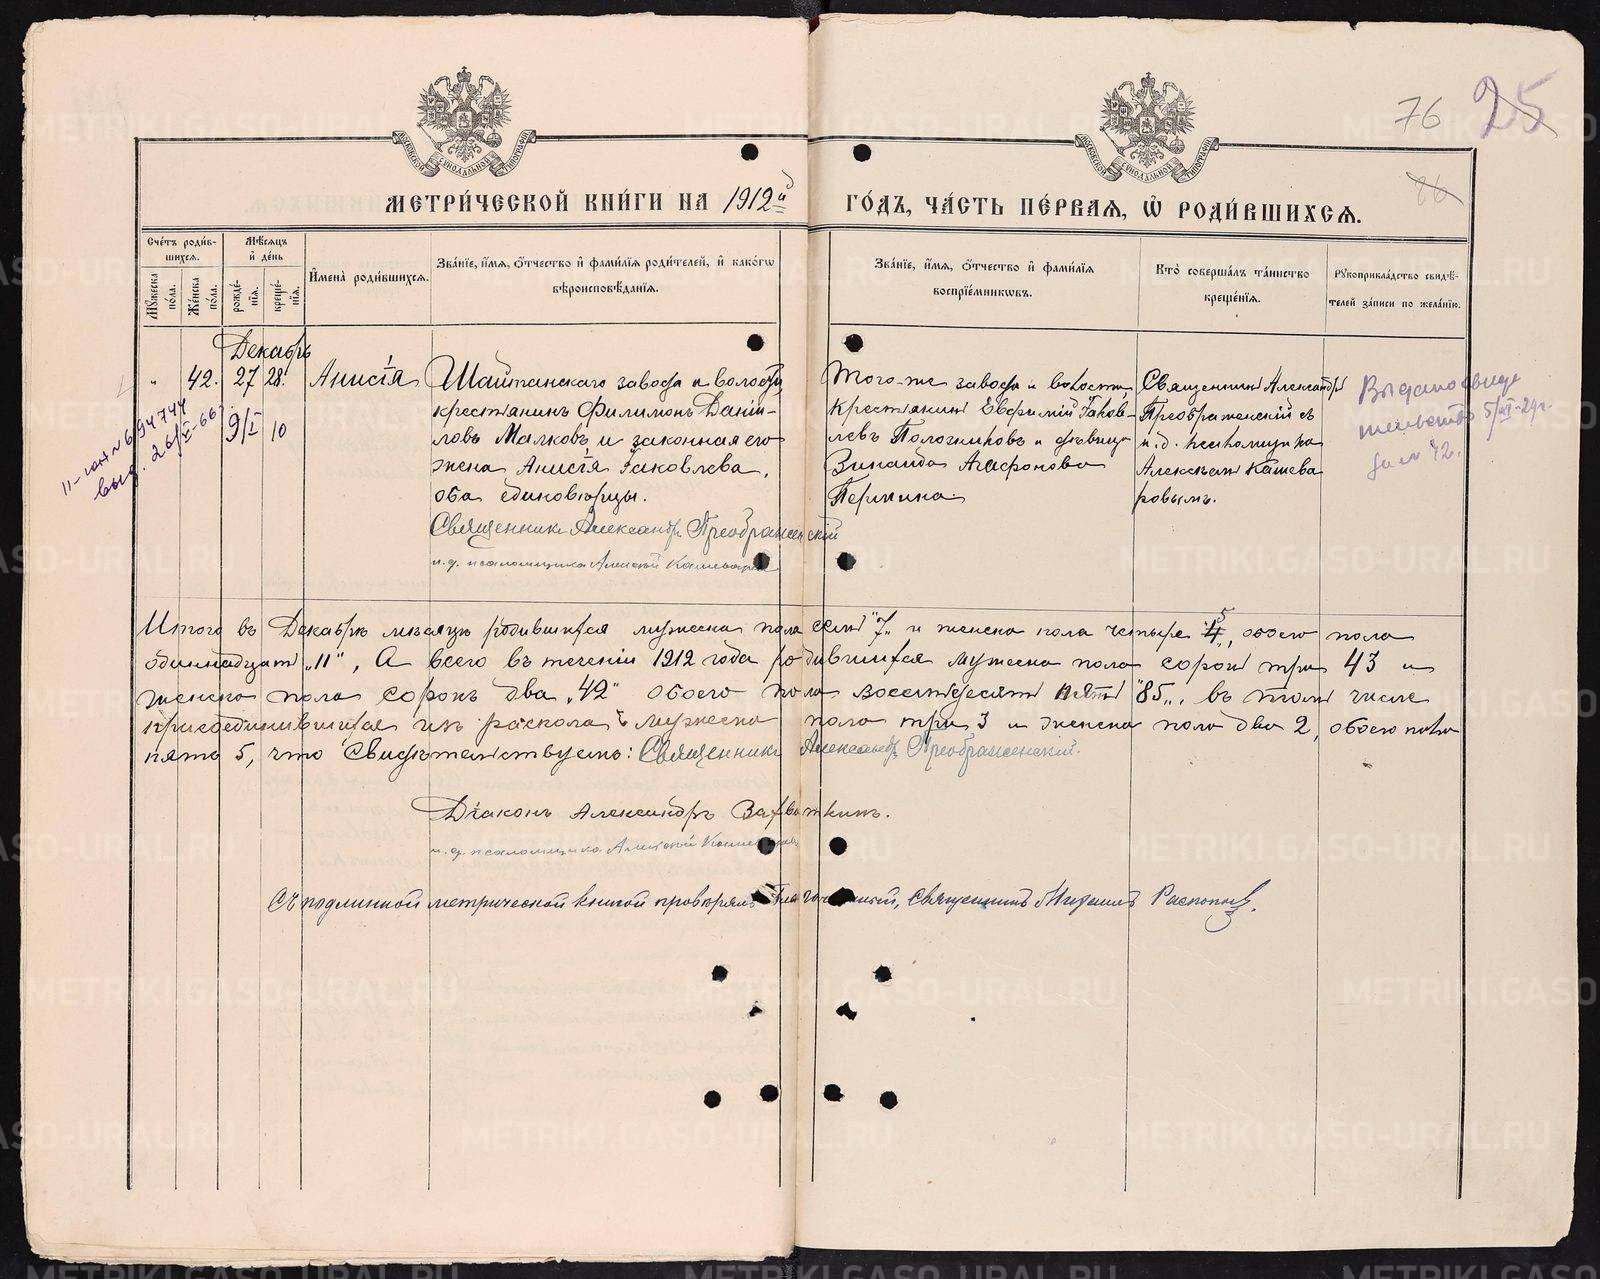 76 25
86
МОСКОВСКОЙ СѴНОДАЛЬНОЙ ТИПОГРАФІИ
МОСКОВСКОЙ СѴНОДАЛЬНОЙ ТИПОГРАФІИ
МЕТРИ́ЧЕСКОЙ КНИ́ГИ НА 1912й ГО́ДЪ, ЧА́СТЬ ПЕ́РВАЯ, Ѡ РОДИ́ВШИХСЯ.
Сче́тъ роди́в-
шихся.
Мꙋ́жеска по́ла.
Же́нска по́ла.
Мѣ́сяцъ
и де́нь
рожде́-
нїя.
креще́-
нїя.
Имена̀ роди́вшихся.
Зва́нїе, и́мя, о́тчество и фами́лїя роди́телей, и како́гѡ
вѣроисповѣ́данїя.
Зва́нїе, и́мя, о́тчество и фами́лїя
воспрїе́мникѡвъ.
Кто̀ соверша́лъ та́инство
креще́нїя.
Рꙋкоприкла́дство свидѣ́-
телей за́писи по жела́нїю.
Декабрь
" 42. 27 28. Анисія
9/I 10
Шайтанскаго завода и волости,
крестьянинъ Филимонъ Даніи-
ловъ Малковъ и законная его
жена Анисія Іаковлева,
оба единовѣрцы.
Священникъ Александръ Преображенскій
и.д. псаломщика Алексѣй Кашеваровъ
Того-же завода и волости,
крестьянинъ Евфимій Іаков-
левъ и дѣвица
Зинаида Агафонова
Пермина.
Священникъ Александръ
Преображенскій съ
и.д. псаломщика
Алексѣемъ Кашева
ровымъ.
Выдано свиде
тельство 5/VI-29г.
за № 42.
№ 694744
выд. 26/V-66г.
Итого въ Декабрѣ мѣсяцѣ родившихся мужеска пола семь "7" и женска пола четыре 4, 5 обоего пола
одиннадцать "11", А всего въ теченіи 1912 года родившихся мужеска пола сорокъ три 43 и
женска пола сорокъ два "42" обоего пола восемьдесятъ пять "85", въ томъ числе
присоединившихся изъ раскола мужеска пола три 3 и женска пола два 2, обоего пола
пять 5, что свидѣтельствуемъ: Священникъ Александръ Преображенскій.
Діаконъ Александръ
и.д. псаломщика Алексѣй Кашеваровъ
Съ подлинной метрической книгой провѣрялъ Благочинный, Священникъ Михаилъ Распоповъ.
METRIKI.GASO-URAL.RU